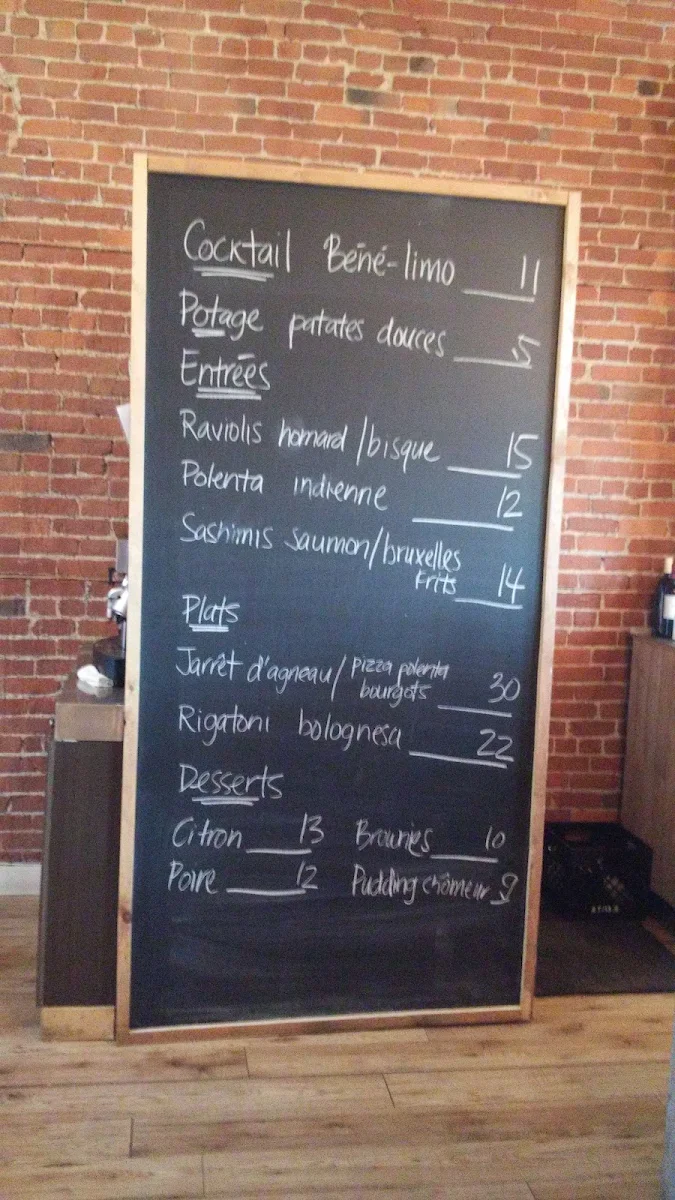 Cocktail Béné-limo 11
Potage patates douces 5
Entrées
Raviolis homard/bisque 15
Polenta indienne 12
Sashimis saumon/bruxelles
Frits 14
Plats
Jarrêt d'agneau/pizza polenta
bourgots 30
Rigatoni bolognesa 22
Desserts
Citron 13 Brownies 10
Poire 12 Pudding chômeur 9